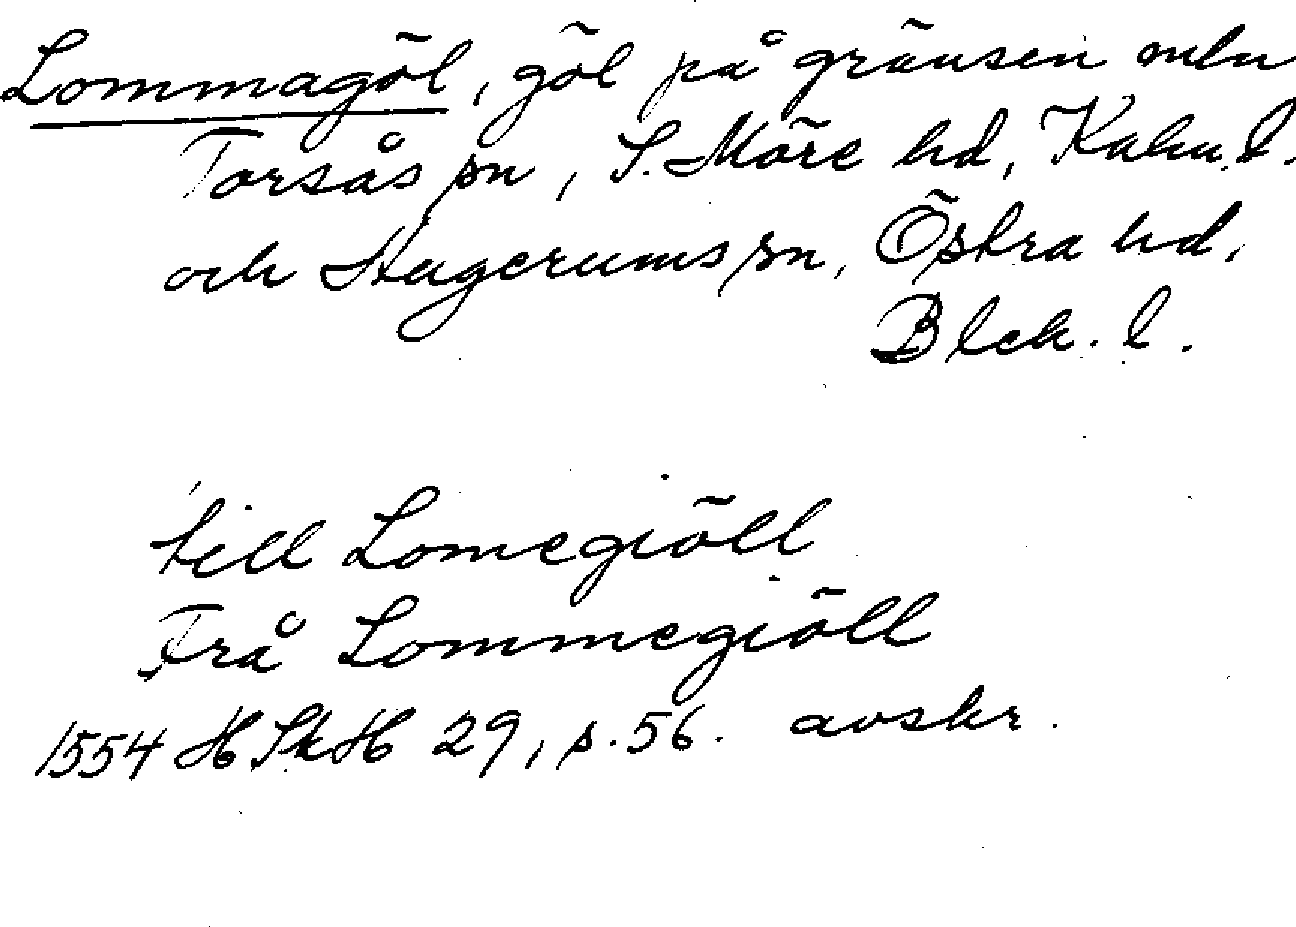 Lommagöl, göl på gränsen mln
Torsås sn, S. Möre hd, Kalm. l.
och Hugerums sn, Östra hd,
Blek. l.
till Lomegiöll
Frå Lommegiöll
1554 HSkH 29, s. 56. avskr.